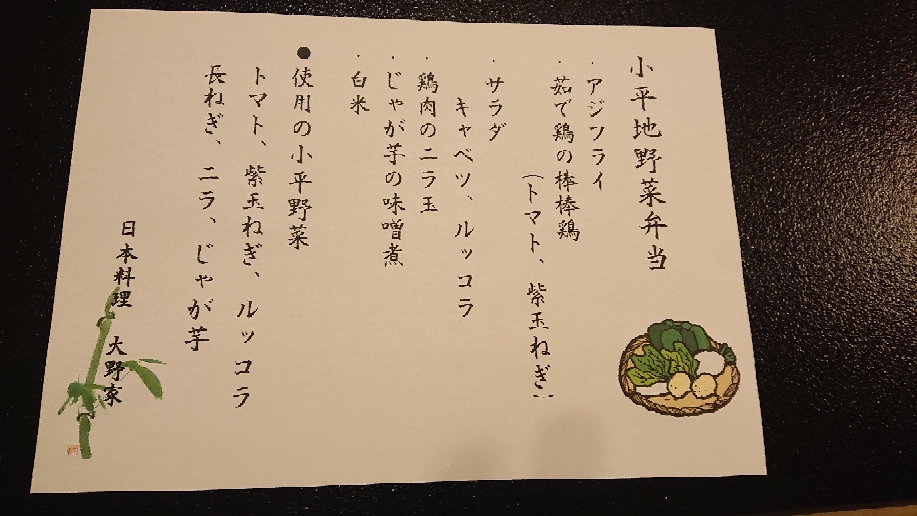 小平地野菜弁当
・アジフライ
・茹で鶏の棒棒鶏
（トマト、紫玉ねぎ）
・サラダ
キャベツ、ルッコラ
・鶏肉のニラ玉
・じゃが芋の味噌煮
・白米
●使用の小平野菜
トマト、紫玉ねぎ、ルッコラ
長ねぎ、ニラ、じゃが芋
日本料理 大野家